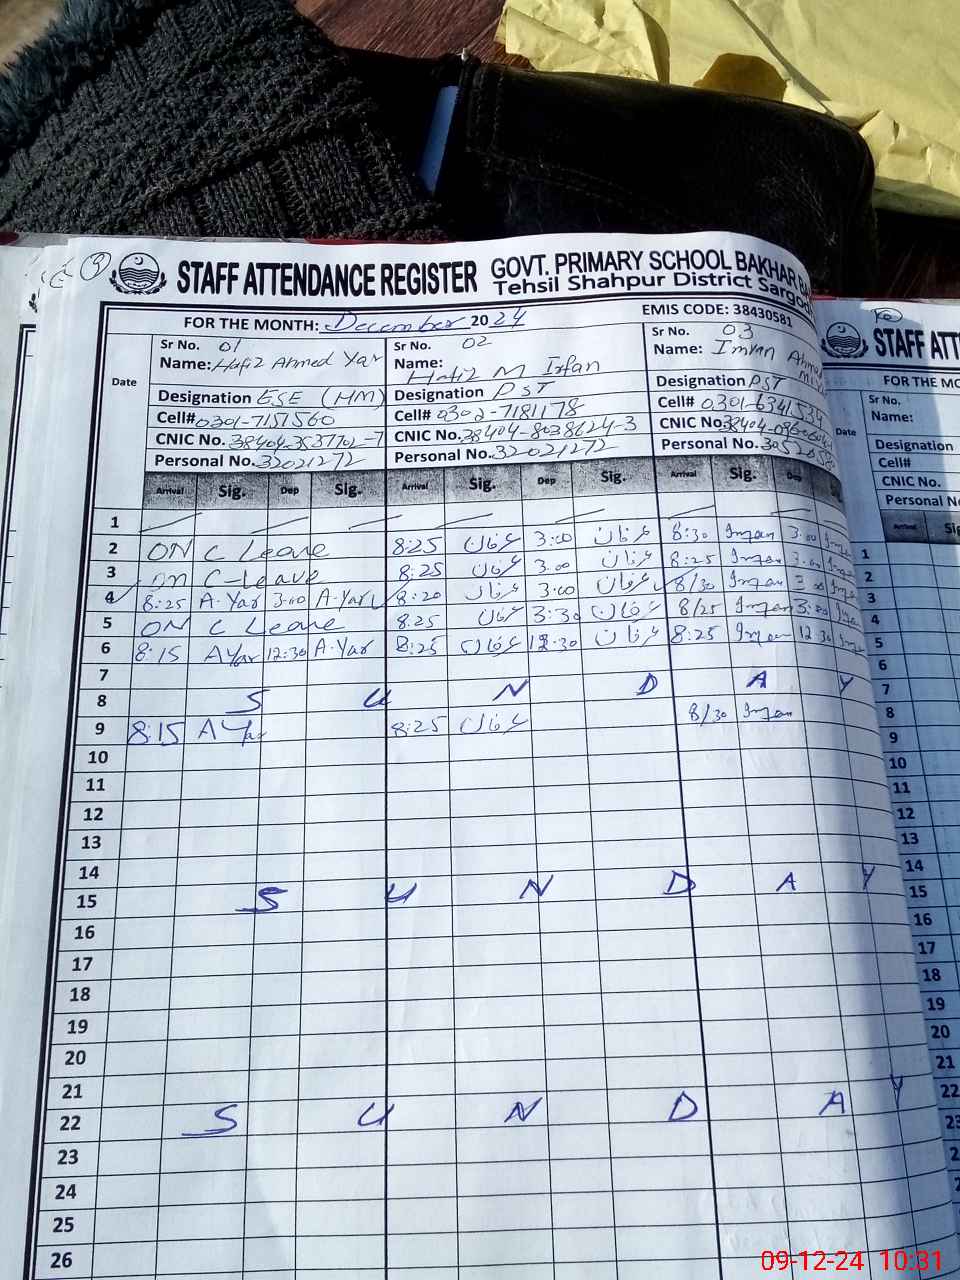 STAFF ATTENDANCE REGISTER GOVT. PRIMARY SCHOOL BAKHAR
Tehsil Shahpur District Sargod
FOR THE MONTH: December 2024 EMIS CODE: 38430581
Date Sr No. 01 Sr No. 02 Sr No. 03
Name: Hafiz Ahmed Yar Name: Hafiz M Irfan Name: Imran Ahmad
Designation ESE (HM) Designation PST Designation PST
Cell# 0301-7157560 Cell# 0302-7181178 Cell# 0301-6341534
CNIC No. 38404-3537702-7 CNIC No. 38404-8038624-3 CNIC No.
Personal No. 32021272 Personal No. 32021272 Personal No.
Arrival Sig. Dep Sig. Arrival Sig. Dep Sig. Arrival Sig. Dep
1
2 ON C Leave 8:25 عرفان 3:00 عرفان 8:30 Imran 3:00 Imran
3 on C-Leave 8:25 عرفان 3:00 عرفان 8:25 Imran 3:00 Imran
4 8:25 A.Yar 3:00 A.Yar 8:20 عرفان 3:00 عرفان 8/30 Imran 3:00 Imran
5 ON C Leave 8:25 عرفان 3:30 عرفان 8/25 Imran 3:00 Imran
6 8:15 AYar 12:30 A.Yar 8:25 عرفان 12:30 عرفان 8:25 Imran 12:30 Imran
7
8 S U N D A Y
9 8:15 A Yar 8:25 عرفان 8/30 Imran
10
11
12
13
14
15 S U N D A Y
16
17
18
19
20
21
22 S U N D A Y
23
24
25
26
STAFF ATT
FOR THE MO
Sr No.
Name:
Date Designation
Cell#
CNIC No.
Personal No
Arrival
1
2
3
4
5
6
7
8
9
10
11
12
13
14
15
16
17
18
19
20
21
22
23
24
25
09-12-24 10:31